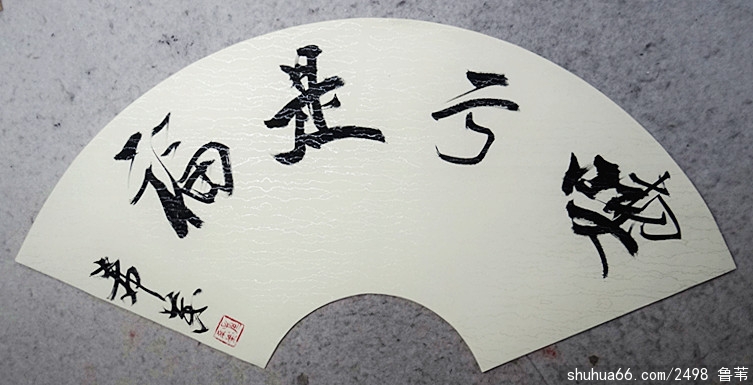 喫亏是福
shuhua66.com/2498 鲁苇